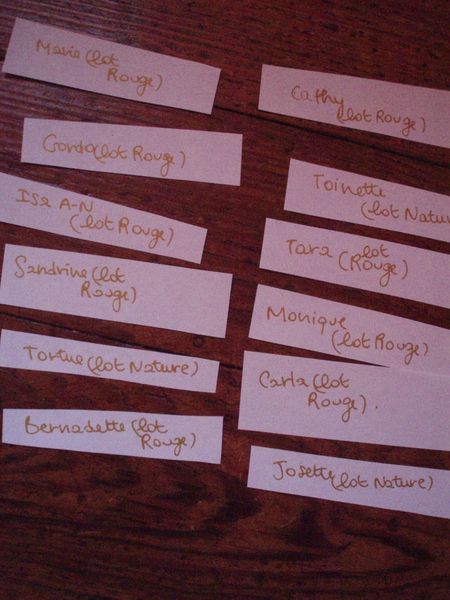 Marie (lot
Rouge)
Gondo (lot Rouge)
Isa A-N
(lot Rouge)
Sandrine (lot
Rouge)
Tortue (lot Nature)
Bernadette (lot
Rouge)
Cathy
(lot Rouge)
Toinette
(lot Natu
Tara (lot
Rouge)
Monique
(lot Rouge)
Carla (lot
Rouge).
Josette (lot Nature)